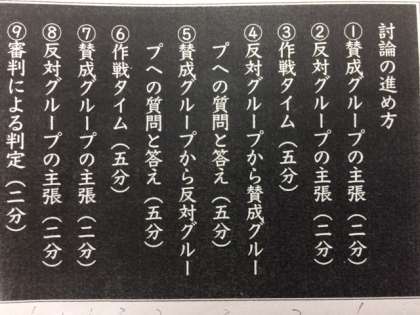 討論の進め方
①賛成グループの主張（二分）
②反対グループの主張（二分）
③作戦タイム（五分）
④反対グループから賛成グルー
プへの質問と答え（五分）
⑤賛成グループから反対グルー
プへの質問と答え（五分）
⑥作戦タイム（五分）
⑦賛成グループの主張（二分）
⑧反対グループの主張（二分）
⑨審判による判定（二分）